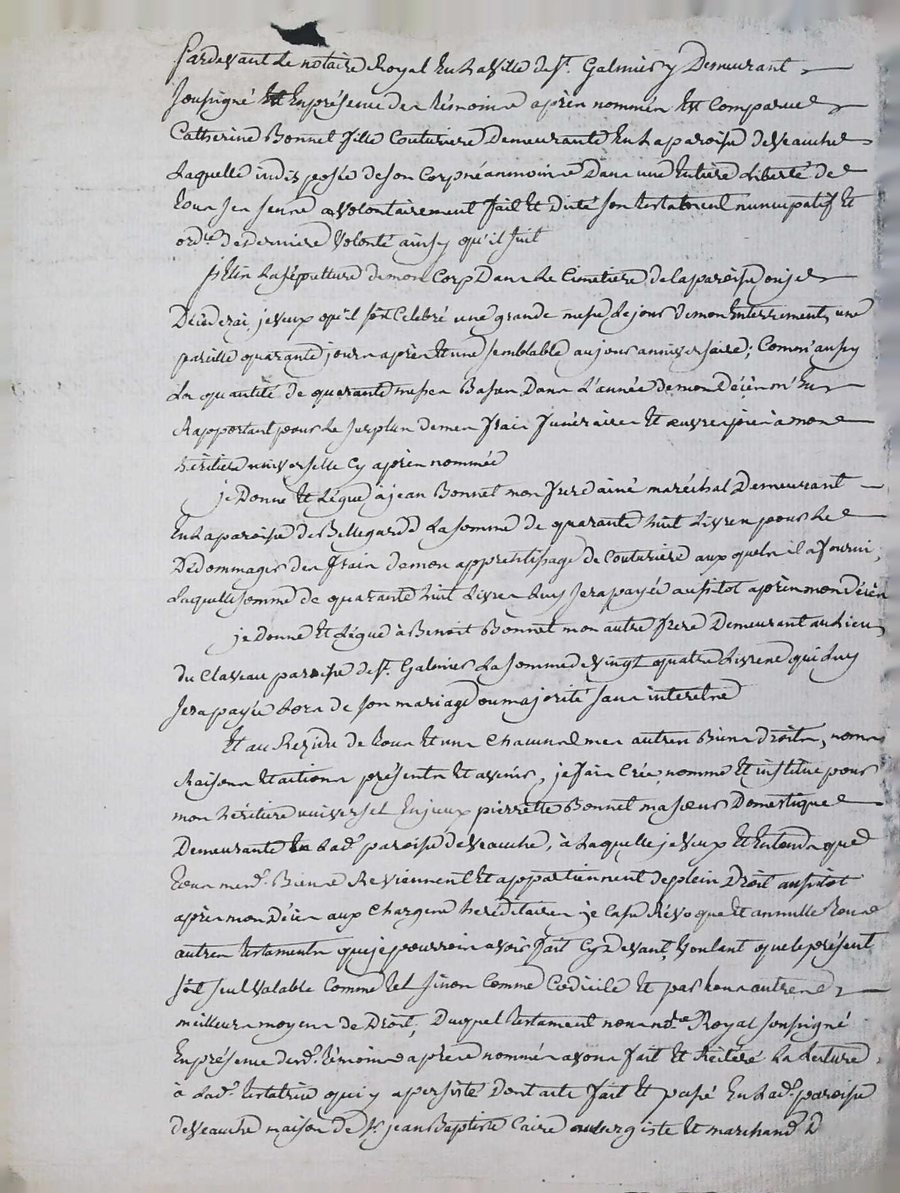 Pardevant Le notaire Royal En La Ville de St. Galmier y Demeurant
Soussigné Et En présence des témoins après nommés Est Comparue
Catherine Bonnet fille Couturiere Demeurante En La paroisse de Veauche
Laquelle indisposée de son Corp néanmoins Dans une Entiere Liberté de
tous ses sens a volontairement fait Et Dicté son testament nuncupatif Et
ordce de derniere volonté ainsy qu'il suit
j'Elis La sépulture de mon Corp Dans Le Cimetiere de la paroisse ou je
Décéderai, je veux qu'il soit Celebré une grande messe Le jour de mon Enterrement, une
pareille quarante jours après Et une semblable au jour anniversaire; Comm'aussy
La quantité de quarante messes Basses Dans L'année de mon Décès m'En
Rapportant pour Le surplus de mes frais funéraires Et œuvres pies à mon
héritiere universelle Cy après nommée
je Donne Et Légue à jean Bonnet mon frere ainé maréchal Demeurant
En La paroisse de Bellegarde La somme de quarante huit Livres pour Le
Dédommager des frais de mon apprentissage de Couturiere aux quels il a fourni;
Laquelle somme de quarante huit Livres Luy sera payée aussitot après mon Décès
je Donne Et Légue à Benoit Bonnet mon autre frere Demeurant au Lieu
du Claveau paroisse de St. Galmier La somme de vingt quatre Livres qui Luy
sera payée Lors de son mariage ou majorité sans interets
Et au Rezidu de tous Et uns Chacuns mes autres Biens Droits, noms
Raisons Et actions présents Et avenir, je fais Crée, nomme Et institue pour
mon héritiere universel En jeux pierrette Bonnet ma sœur Domestique
Demeurante En Lad. paroisse de Veauche, à Laquelle je veux Et Entends que
tous mesd. Biens Reviennent Et appartiennent de plein Droit aussitot
après mon Décès aux Charges héréditaires je Casse Révoque Et annulle tous
autres testaments que je pourrois avoir fait Cy Devant, voulant que le présent
soit seul valable Comme tel sinon Comme Codicile Et par tous autres
meilleurs moyens de Droit, Duquel testament nous nore Royal soussigné
En présence desd. témoins après nommés avons fait Et Réitéré La Lecture
à Lad. testatrice qui y a persisté Dont acte fait Et passé En Lad. paroisse
de Veauche maison de Sr. jean Baptiste Caire Et marchand